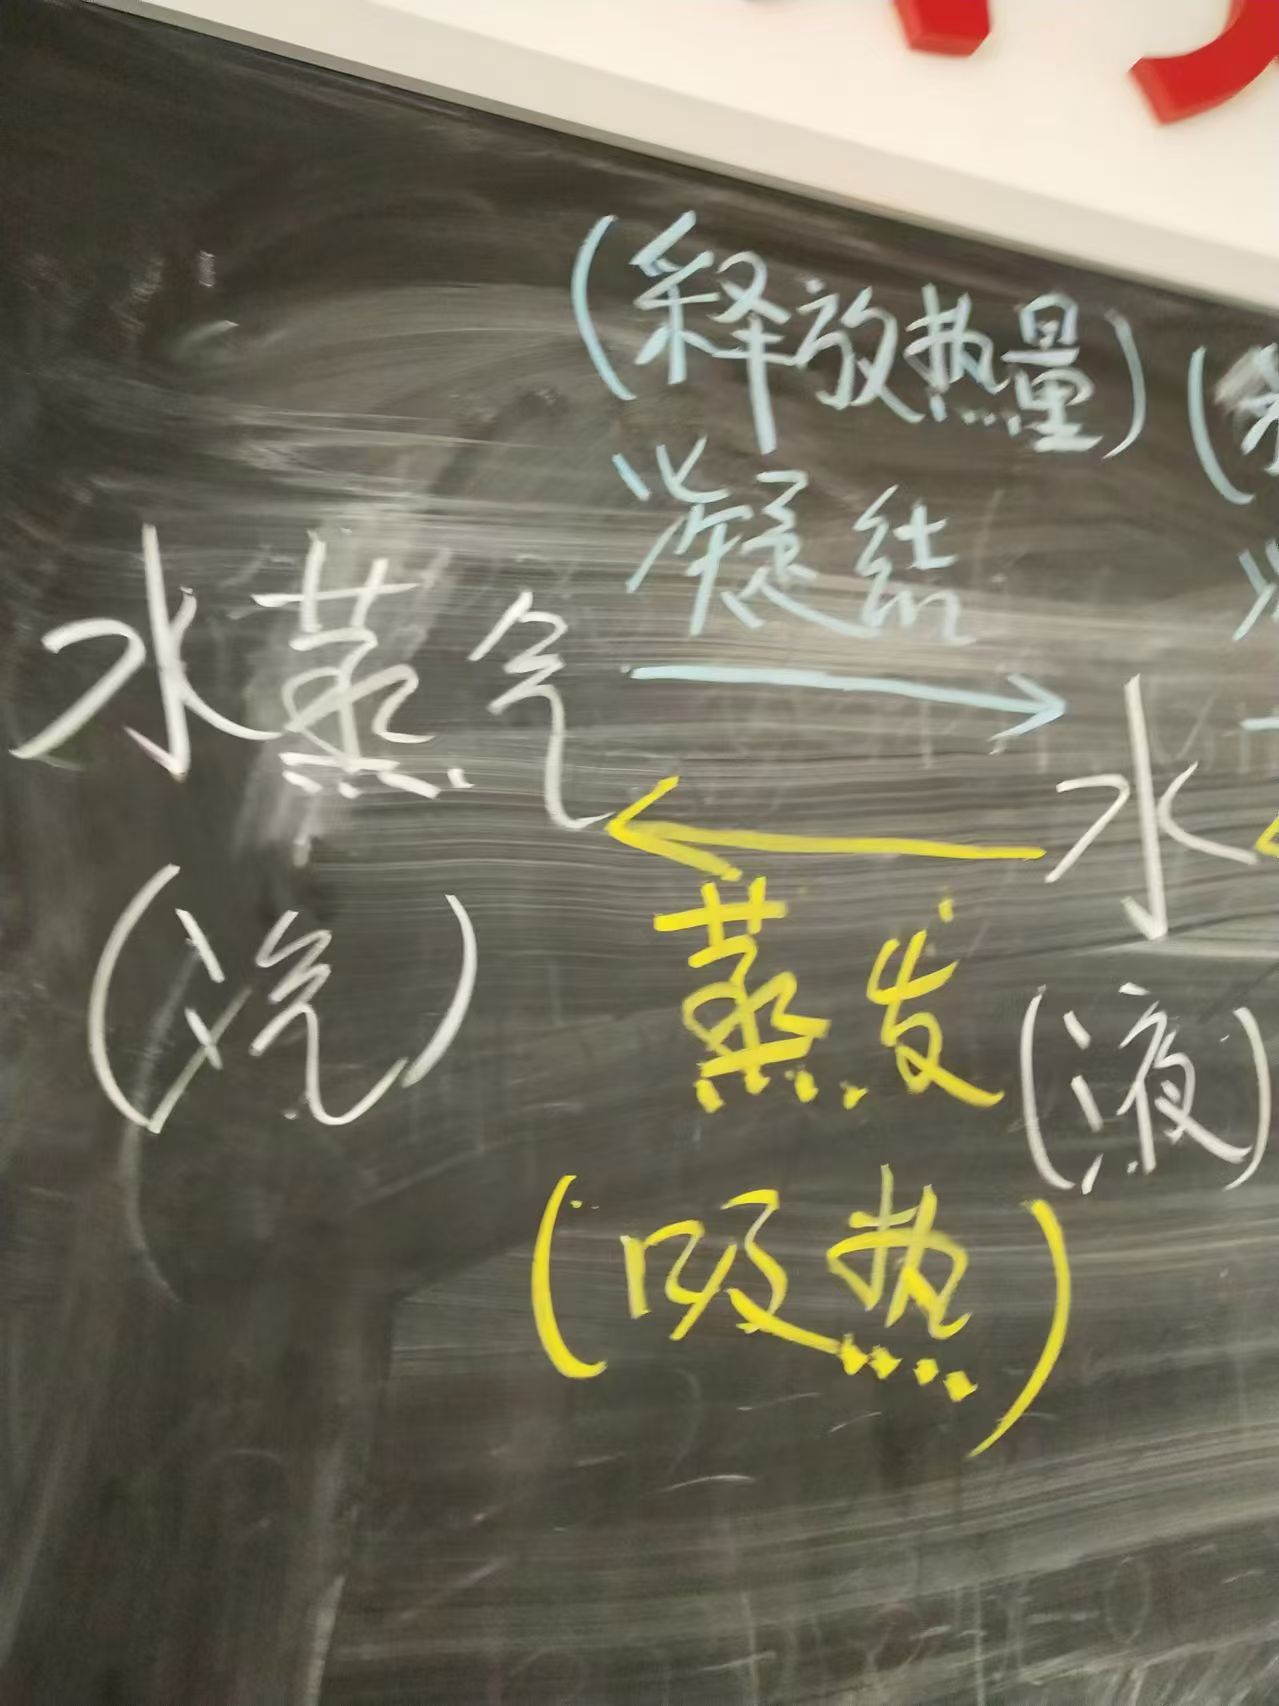 (释放热量)
凝结
水蒸气 → 水
←
蒸发
(汽) (液)
(吸热)